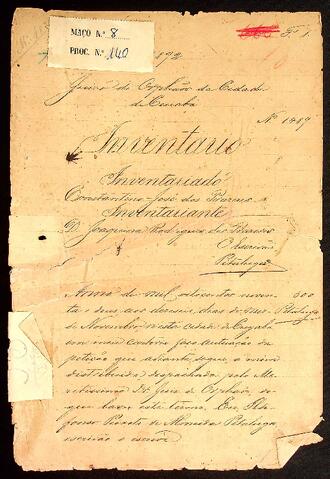 MAÇO N.º 8
PROC. N.º 140
1892
Fl. 1
Juizo de Orphãos da Cidade
de Cuiabá
Nº 1419
Inventario
Inventariado
Constantino José dos Prazeres
Inventariante
D. Joaquina Rodrigues dos Prazeres
O Escrivão
Pitaluga
Anno de mil oitocentos noventa
e dous aos dias do mez
de Novembro nesta cidade de Cuyabá
em meu cartorio faço autuação da
petição que adiante segue, a mim
distribuida despachada pelo Me
ritissimo Dr Juiz de Orphãos, do
que lavro este termo. Eu, Ilde
fonso Peixoto de Almeida Pitaluga,
escrivão o escrevi